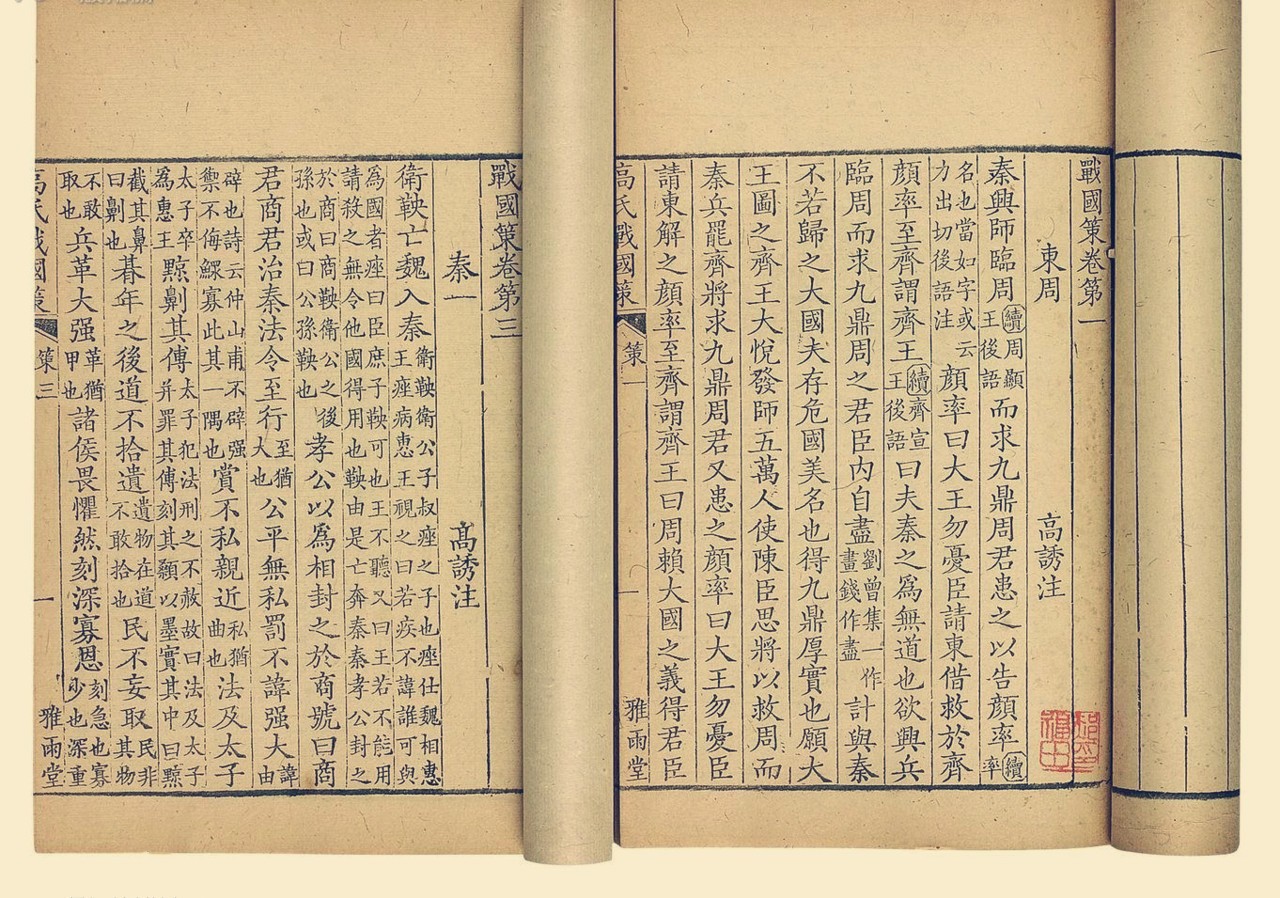 戰國策卷第一
東周 高誘注
秦興師臨周續周顯王後語而求九鼎周君患之以告顏率續率
名也當如字或云力出切後語注顏率曰大王勿憂臣請東借救於齊
顏率至齊謂齊王續齊宣王後語曰夫秦之爲無道也欲興兵
臨周而求九鼎周之君臣內自盡劉曾集一作畫錢作盡計與秦
不若歸之大國夫存危國美名也得九鼎厚實也願大
王圖之齊王大悅發師五萬人使陳臣思將以救周而
秦兵罷齊將求九鼎周君又患之顏率曰大王勿憂臣
請東解之顏率至齊謂齊王曰周賴大國之義得君臣
高氏戰國策 策一 一 雅雨堂
戰國策卷第三
秦一 高誘注
衛鞅亡魏入秦衛鞅衛公子叔痤之子也痤仕魏相惠王痤病惠王視之曰若疾不諱誰可與
爲國者痤曰臣庶子鞅可也王不聽又曰王若不能用請殺之無令他國得用也鞅由是亡奔秦秦孝公封之
於商曰商鞅衛公之後孫也或曰公孫鞅也孝公以爲相封之於商號曰商
君商君治秦法令至行至猶大也公平無私罰不諱强大諱由
辟也詩云仲山甫不辟强禦不侮鰥寡此其一隅也賞不私親近私猶曲也法及太子
太子卒爲惠王黥劓其傅太子犯法刑之不赦故曰法及太子并罪其傅刻其顙以墨實其中曰黥
截其鼻曰劓也朞年之後道不拾遺遺物在道不敢拾也民不妄取民非其物
不敢取也兵革大强革猶甲也諸侯畏懼然刻深寡恩刻急也寡少也深重
高氏戰國策 策三 一 雅雨堂